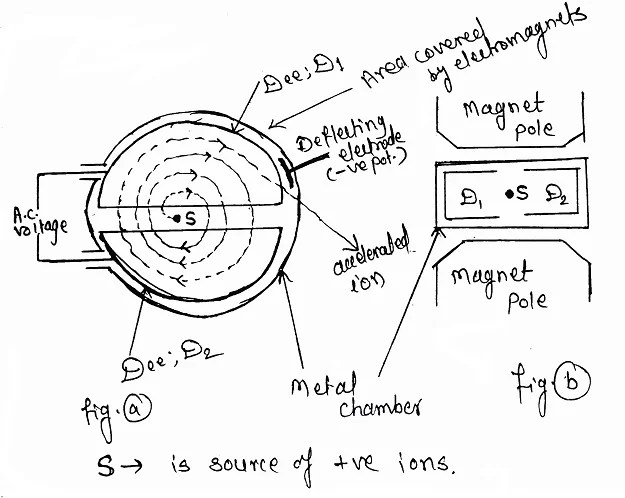 Dee; D1
Area covered
by electromagnets
Deflecting
electrode
(-ve pot.)
A.C.
voltage
S
accelerated
ion
Dee; D2
Metal
chamber
fig. (a)
Magnet
pole
D1
S
D2
Magnet
pole
fig. (b)
S → is source of +ve ions.